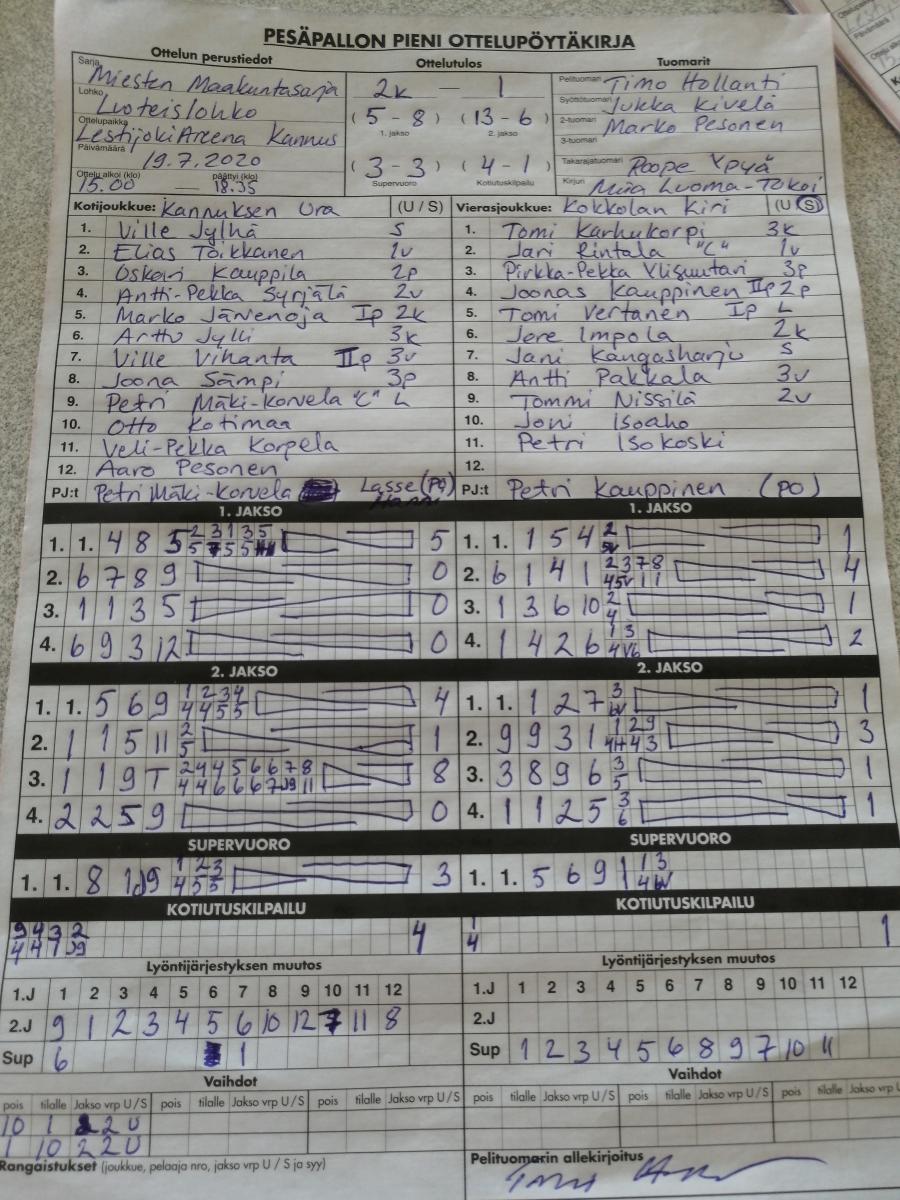 PESÄPALLON PIENI OTTELUPÖYTÄKIRJA
Ottelun perustiedot Ottelutulos Tuomarit
Sarja Miesten Maakuntasarja 2k — 1 Pelituomari Timo Hollanti
Lohko Luoteislohko Syöttötuomari Jukka Kivelä
Ottelupaikka Lestijoki Areena Kannus (5 - 8) (13 - 6) 2-tuomari Marko Pesonen
1. jakso 2. jakso 3-tuomari
Päivämäärä 19.7.2020 (3 - 3) (4 - 1) Takarajatuomari Roope Ypyä
Ottelu alkoi (klo) 15.00 — päättyi (klo) 18.35 Supervuoro Kotiutuskilpailu Kirjuri Miia Luoma-Tokoi
Kotijoukkue: Kannuksen Ura (U / S) Vierasjoukkue: Kokkolan Kiri (U S)
1. Ville Jylhä S 1. Tomi Karhukorpi 3k
2. Elias Toikkanen 1v 2. Jari Rintala "C" 1v
3. Oskari Kauppila 2p 3. Pirkka-Pekka Ylisuutari 3p
4. Antti-Pekka Syrjälä 2v 4. Joonas Kauppinen IIp 2p
5. Marko Järvenoja Ip 2k 5. Tomi Vertanen Ip L
6. Arttu Jylli 3k 6. Jere Impola 2k
7. Ville Vihanta IIp 3v 7. Jani Kangasharju S
8. Joona Sämpi 3p 8. Antti Pakkala 3v
9. Petri Mäki-Korvela "C" L 9. Tommi Nissilä 2v
10. Otto Kotimaa 10. Joni Isoaho
11. Veli-Pekka Korpela 11. Petri Isokoski
12. Aaro Pesonen 12.
PJ:t Petri Mäki-Korvela Lasse (PQ) PJ:t Petri Kauppinen (PO)
1. JAKSO 1. JAKSO
1. 1. 4 8 5 2 3 1 3 5 5 1. 1. 1 5 4 2 1
5 5 5
2. 6 7 8 9 0 2. 6 1 4 1 2 3 7 8 4
4 5V 1 1
3. 1 1 3 5 0 3. 1 3 6 10 2 1
4
4. 6 9 3 12 0 4. 1 4 2 6 1 3 2
4 V6
2. JAKSO 2. JAKSO
1. 1. 5 6 9 1 2 3 4 4 1. 1. 1 2 7 3 1
4 4 5 5 6V
2. 1 1 5 11 2 1 2. 9 9 3 1 1 2 9 3
5 4 3
3. 1 1 9 T 2 4 4 5 6 6 7 8 8 3. 3 8 9 6 3 1
4 4 6 6 6 7 J9 11 5
4. 2 2 5 9 0 4. 1 1 2 5 3 1
6
SUPERVUORO SUPERVUORO
1. 1. 8 1 J9 1 2 3 3 1. 1. 5 6 9 1 1 3
4 5 5 4 6V
KOTIUTUSKILPAILU KOTIUTUSKILPAILU
9 4 3 2 4 1 1
4 4 1 J9 4
Lyöntijärjestyksen muutos Lyöntijärjestyksen muutos
1.J 1 2 3 4 5 6 7 8 9 10 11 12 1.J 1 2 3 4 5 6 7 8 9 10 11 12
2.J 9 1 2 3 4 5 6 10 12 7 11 8 2.J
Sup 6 1 Sup 1 2 3 4 5 6 8 9 7 10 11
Vaihdot Vaihdot
pois tilalle Jakso vrp U / S pois tilalle Jakso vrp U / S pois tilalle Jakso vrp U / S pois tilalle Jakso vrp U / S pois tilalle Jakso vrp U / S pois tilalle Jakso vrp U
10 1 2 2 U
1 10 2 2 U
Rangaistukset (joukkue, pelaaja nro, jakso vrp U / S ja syy) Pelituomarin allekirjoitus